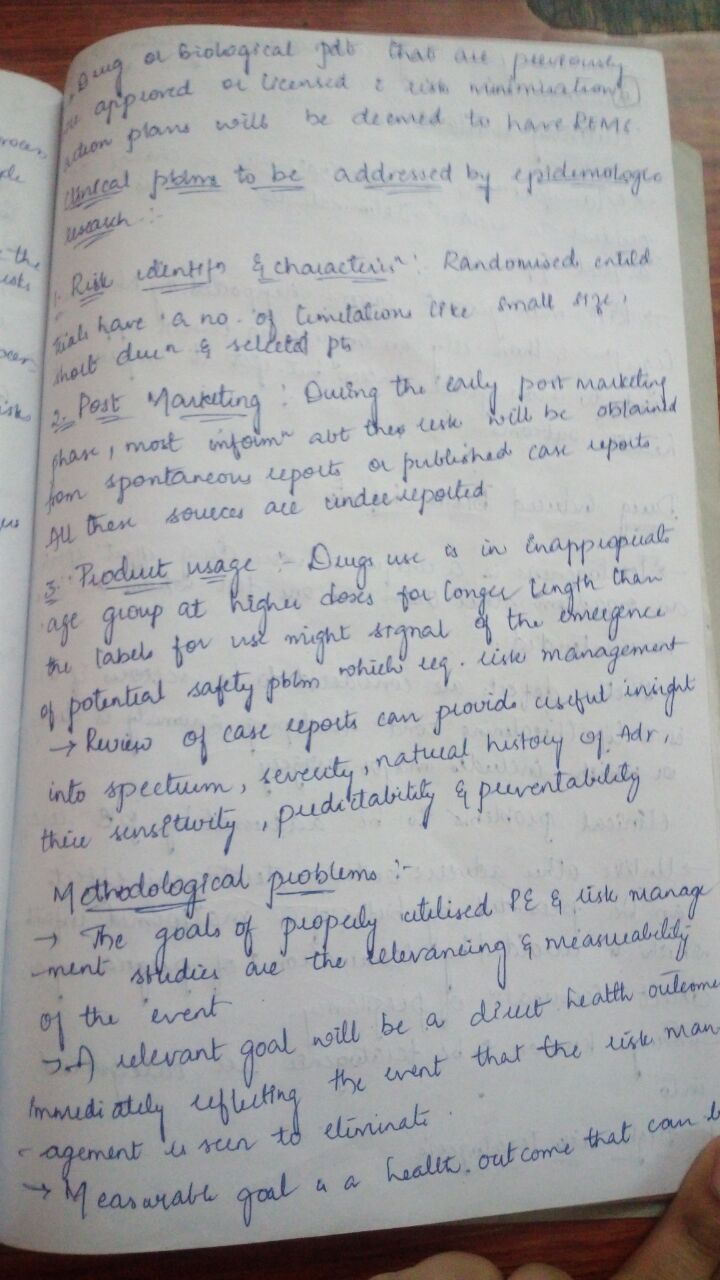 Drug or Biological pdt that are previously
approved or licensed & risk minimisation
action plans will be deemed to have REMS.
Clinical pblms to be addressed by epidemologic
research :-
1. Risk identifn & characterisn : Randomised cntrld
trials have a no. of limitations like small size,
short durn & selected pts
2. Post Marketing : During the early post marketing
phase, most informn abt the risk will be obtained
from spontaneous reports or published case reports.
All these sources are underreported
3. Product usage :- Drugs use is in inappropriate
age group at higher doses for longer length than
the labels for use might signal of the emergence
of potential safety pblm which req. risk management
→ Review of case reports can provide useful insight
into spectrum, severity, natural history of Adr,
their sensitivity, predictability & preventability
Methodological problems :-
→ The goals of properly utilised PE & risk manage
-ment studies are the relevancing & measurability
of the event
→ A relevant goal will be a direct health outcome
immediately reflecting the event that the risk man
-agement is seen to eliminate.
→ Measurable goal is a health outcome that can